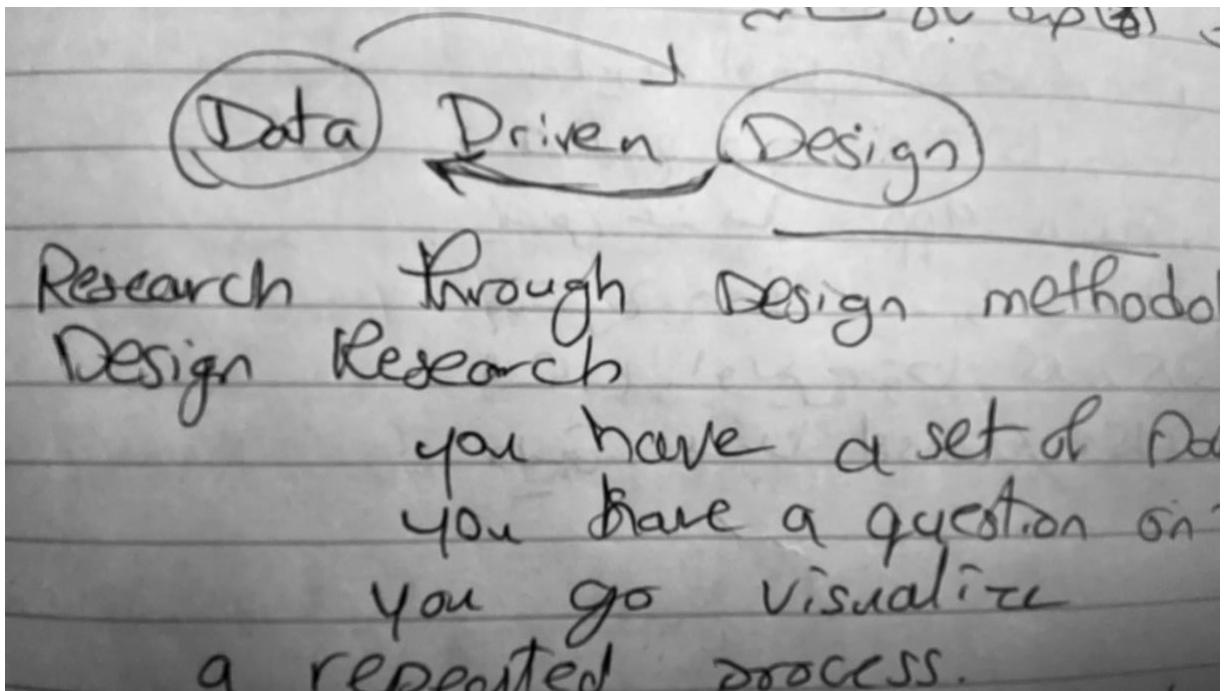 Data Driven Design
Research through Design methodol
Design Research
you have a set of Da
you have a question on
you go visualize
a repeated process.